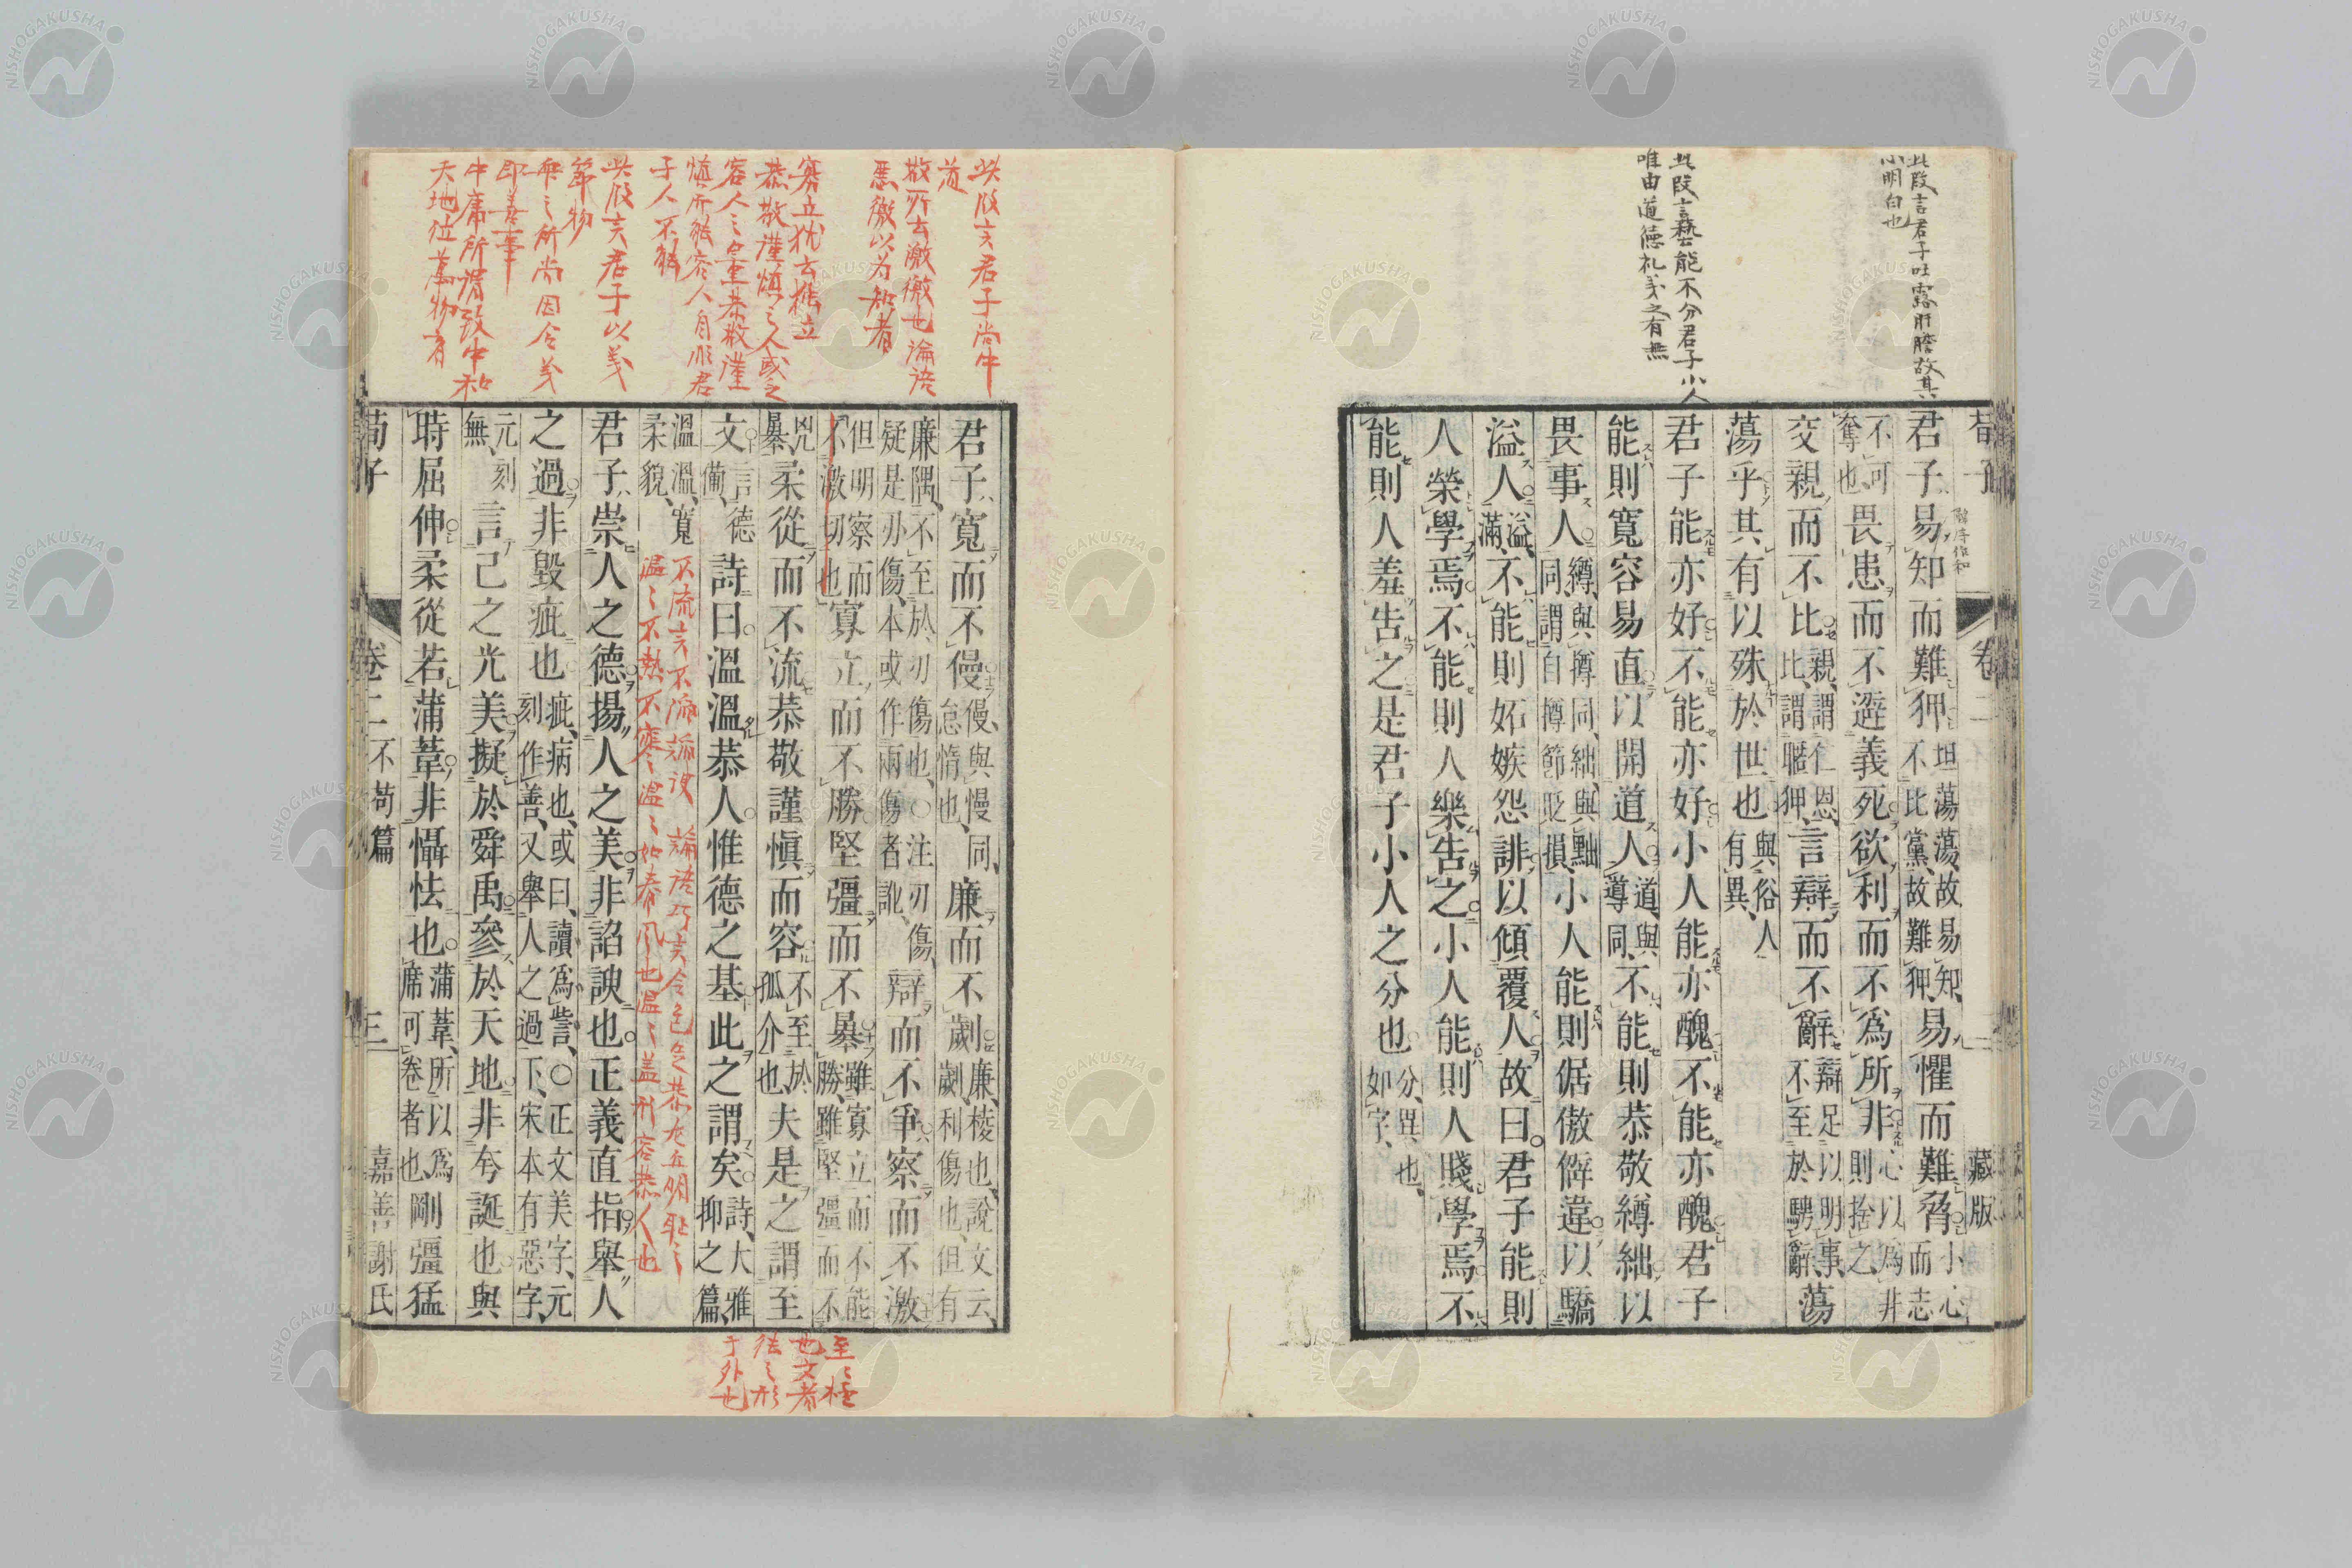 此段言君子吐露肝膽故其
心明白也
此段言藝能不分君子小人
唯由道德礼義之有無
荀子 卷二 二 藏版
韓詩作和
君子易知而難狎坦蕩蕩、故易知、不比黨、故難狎、易懼而難脅小心而志
不可奪也、畏患而不避義死欲利而不為所非心以為非則捨之、
交親而不比親、謂仁恩、比、謂暱狎、言辯而不辭辯足以明事、不至於騁辭、蕩
蕩乎其有以殊於世也與俗人有異、
君子能亦好不能亦好小人能亦醜不能亦醜君子
能則寬容易直以開道人道、與導同、不能則恭敬繜絀以
畏事人繜、與撙同、絀、與黜同、謂自撙節貶損、小人能則倨傲僻違以驕
溢人溢、滿、不能則妬嫉怨誹以傾覆人故曰君子能則
人榮學焉不能則人樂告之小人能則人賤學焉不
能則人羞告之是君子小人之分也分、異也、如字、
此段言君子尚中
道
敬所去激徼也論語
惡徼以為知者
寡立犹去獨立
恭敬謹慎之人或至
容人之是恭敬謹
慎所能容人自形君
子人不能
此段言君子以義
節物
中之所尚因合義
中庸所謂致中和
天地位萬物育
君子寬而不僈僈、與慢同、怠惰也、廉而不劌廉、棱也、說文云、劌利傷也、但有
廉隅、不至於刃傷也、○注刃傷、疑是刅傷、本或作兩傷者訛、辯而不爭察而不激
但明察而不激切也、寡立而不勝堅彊而不暴雖寡立而不能勝、雖堅彊而不
兇暴、柔從而不流恭敬謹慎而容不至於孤介也、夫是之謂至
文言德備、詩曰溫溫恭人惟德之基此之謂矣詩、大雅抑之篇、
溫溫、寬柔貌、
不流言不流諂諛 論語巧言令色足恭左丘明恥之
温〻不熱不寒温〻如春風也温〻盖形容恭人也
君子崇人之德揚人之美非諂諛也正義直指舉人
之過非毀疵也疵、病也、或曰、讀為訾、○正文美字、元刻作善、又舉人之過下、宋本有惡字、
元刻無、言己之光美擬於舜禹參於天地非夸誕也與
時屈伸柔從若蒲葦非懾怯也蒲葦、所以為席可卷者也、剛彊猛
荀子 卷二 不苟篇 三 嘉善謝氏
至〻極
也文者
徳之形
于外也
NISHOGAKUSHA